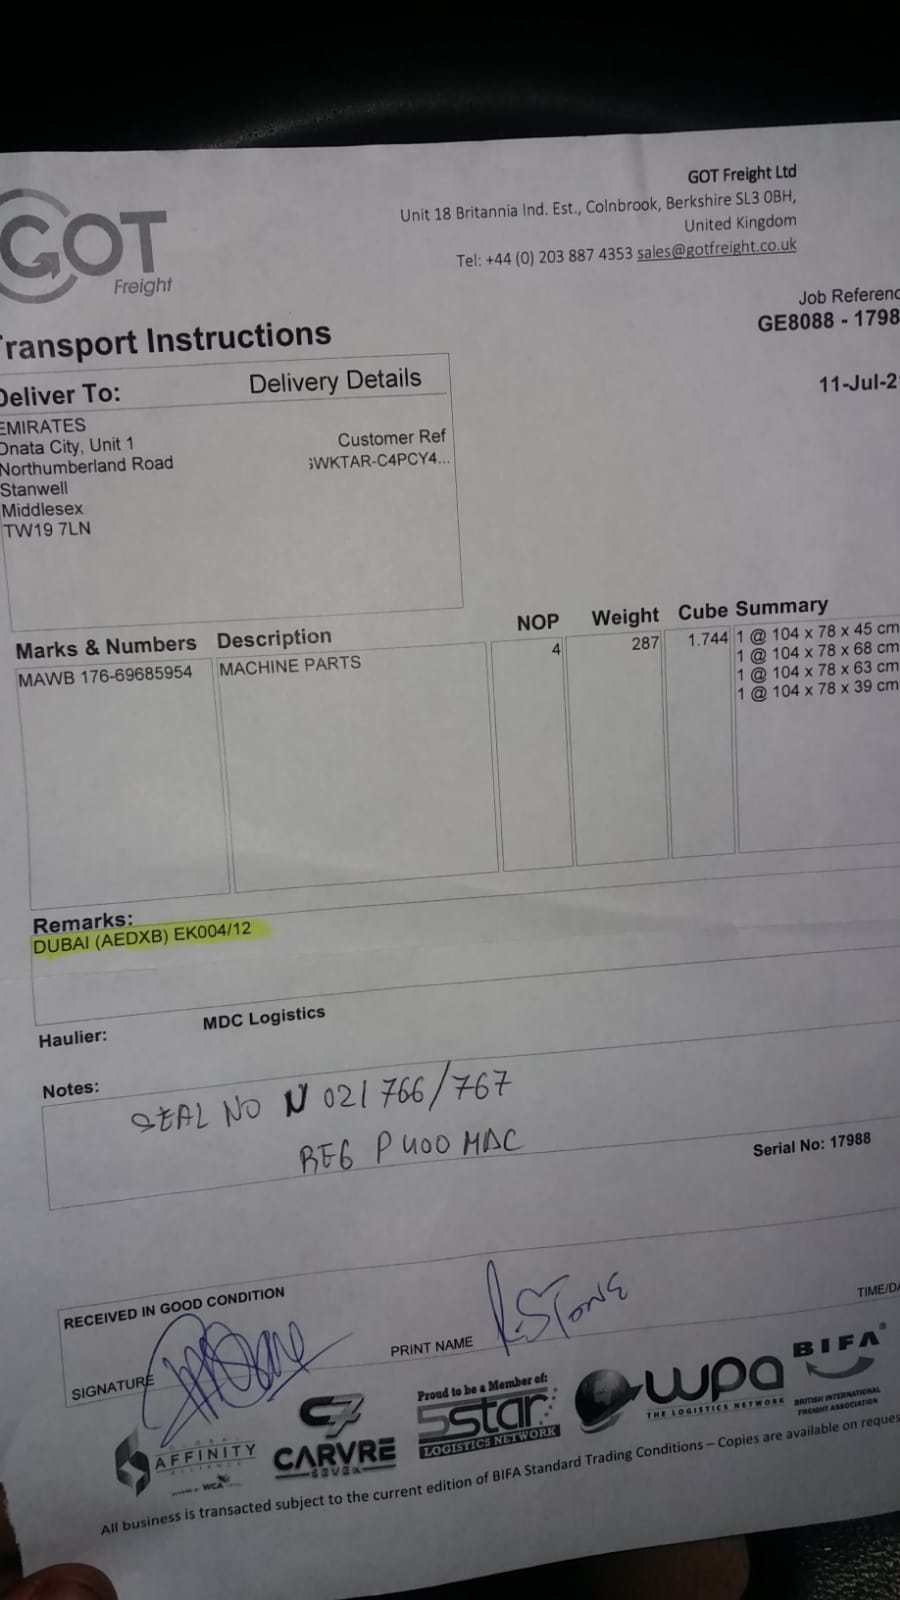 GOT
Freight
GOT Freight Ltd
Unit 18 Britannia Ind. Est., Colnbrook, Berkshire SL3 0BH,
United Kingdom
Tel: +44 (0) 203 887 4353 sales@gotfreight.co.uk
Transport Instructions
Job Referenc
GE8088 - 1798
11-Jul-2
Deliver To:
Delivery Details
EMIRATES
Dnata City, Unit 1
Northumberland Road
Stanwell
Middlesex
TW19 7LN
Customer Ref
WKTAR-C4PCY4...
Marks & Numbers Description NOP Weight Cube Summary
MAWB 176-69685954 MACHINE PARTS 4 287 1.744 1 @ 104 x 78 x 45 cm
1 @ 104 x 78 x 68 cm
1 @ 104 x 78 x 63 cm
1 @ 104 x 78 x 39 cm
Remarks:
DUBAI (AEDXB) EK004/12
Haulier: MDC Logistics
Notes:
SEAL NO N 021766/767
REG P400 MDC
Serial No: 17988
RECEIVED IN GOOD CONDITION
SIGNATURE
PRINT NAME R.STONE
TIME/DA
GLOBAL
AFFINITY
ALLIANCE
WCA
CARVRE
SEVEN
Proud to be a Member of:
5star
LOGISTICS NETWORK
wpa
THE LOGISTICS NETWORK
BIFA
BRITISH INTERNATIONAL
FREIGHT ASSOCIATION
All business is transacted subject to the current edition of BIFA Standard Trading Conditions – Copies are available on reques